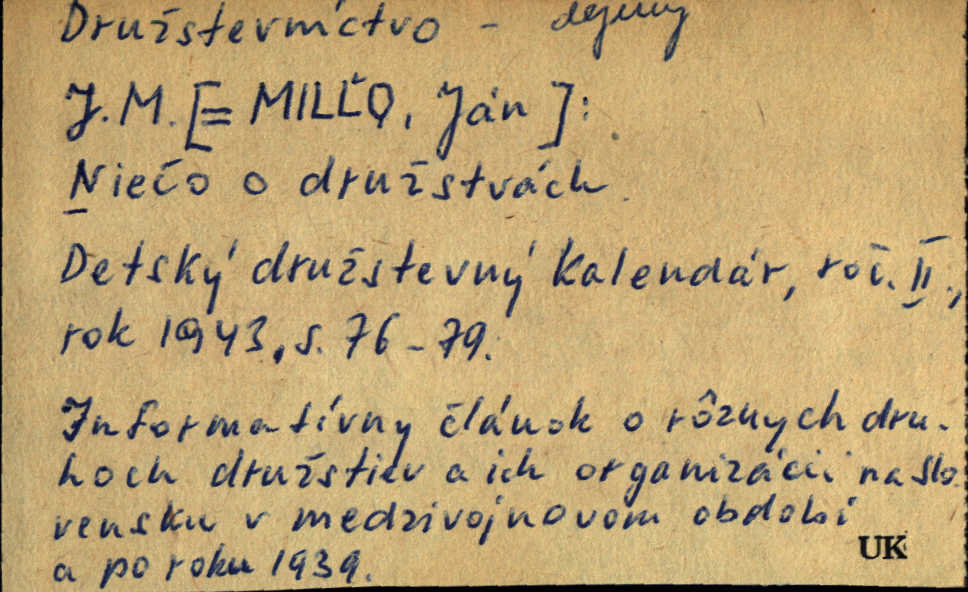 Družstevníctvo - dejiny
J.M. [= MILĽO, Ján]:
Niečo o družstvách.
Detský družstevný kalendár, roč. II.,
rok 1943, s. 76-79.
Informatívny článok o rôznych dru-
hoch družstiev a ich organizácii na Slo-
vensku v medzivojnovom období
a po roku 1939.
UK